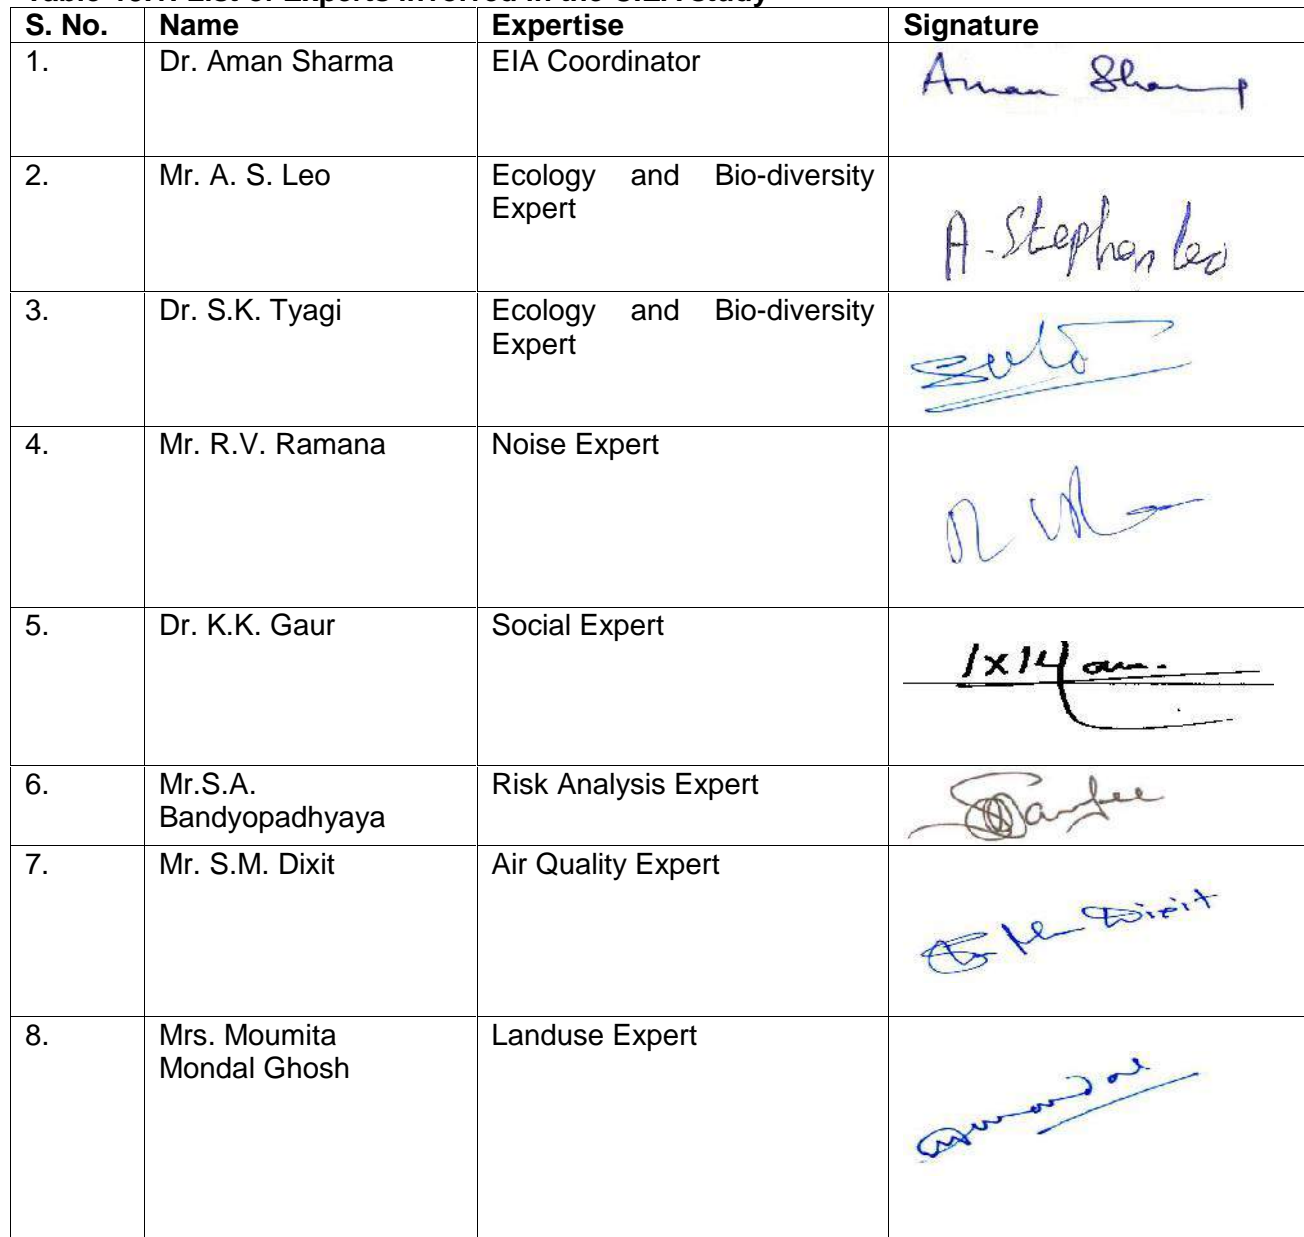 S. No. Name Expertise Signature
1. Dr. Aman Sharma EIA Coordinator Aman Sharma
2. Mr. A. S. Leo Ecology and Bio-diversity
Expert
A. Stephen Leo
3. Dr. S.K. Tyagi Ecology and Bio-diversity
Expert
4. Mr. R.V. Ramana Noise Expert
5. Dr. K.K. Gaur Social Expert
6. Mr.S.A. Risk Analysis Expert
Bandyopadhyaya
7. Mr. S.M. Dixit Air Quality Expert
Dixit
8. Mrs. Moumita Landuse Expert
Mondal Ghosh